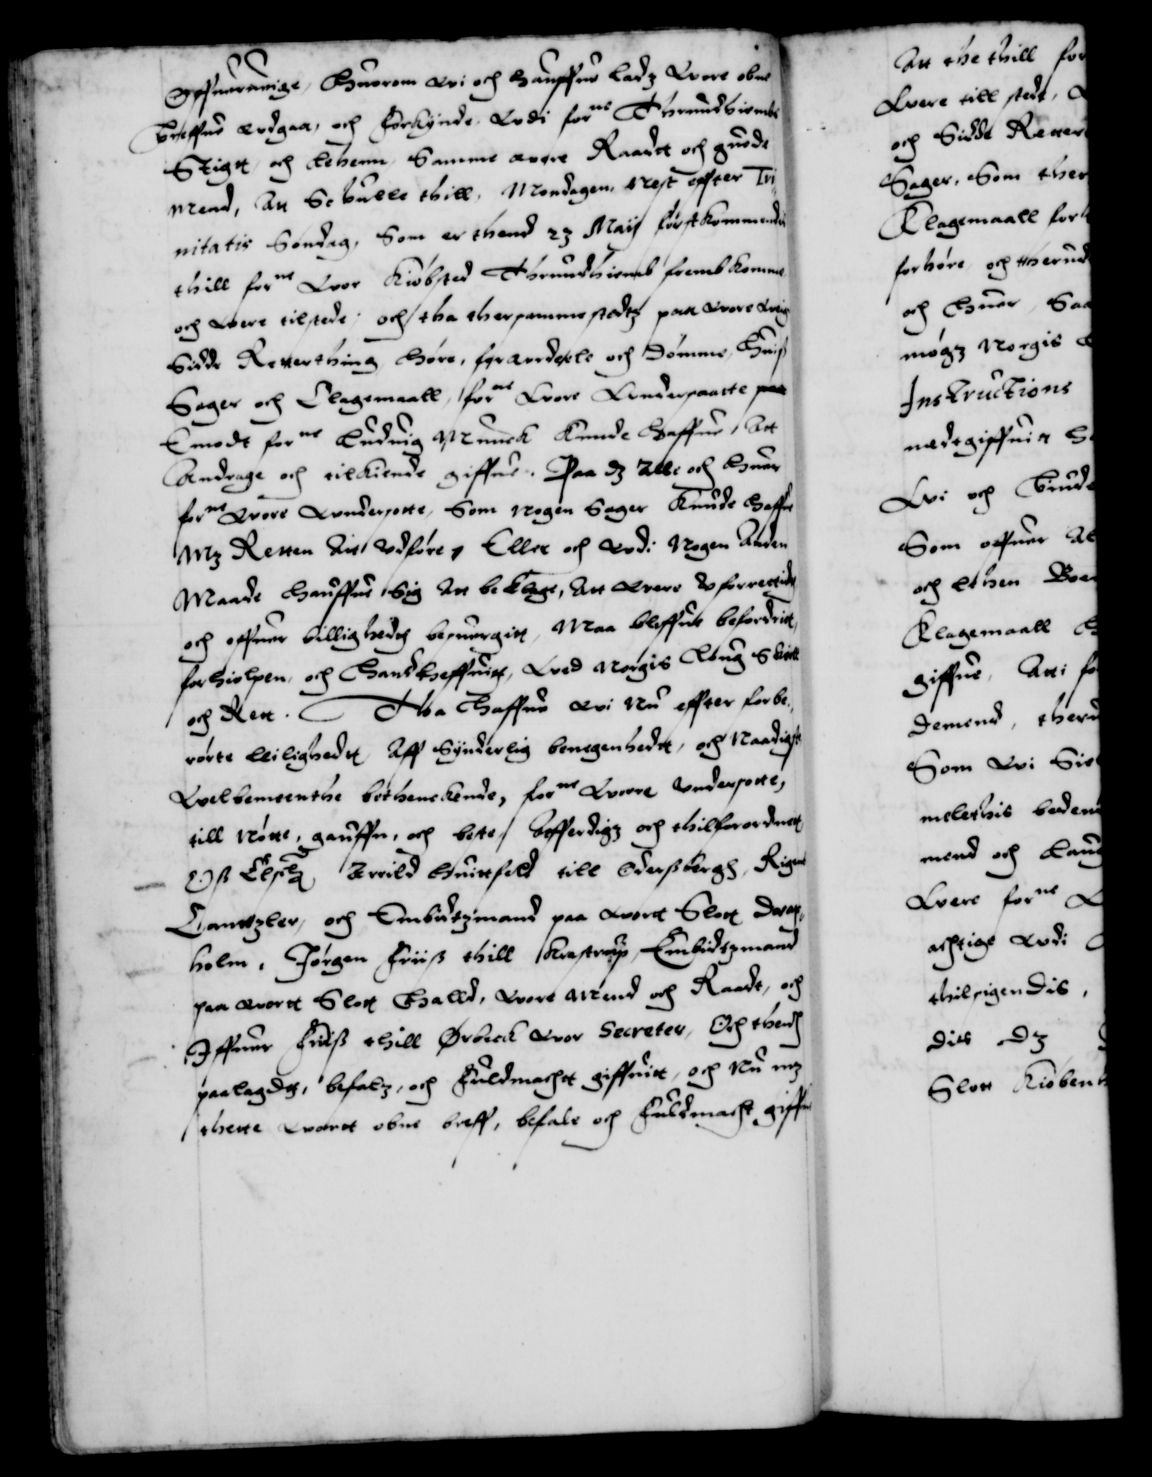 Offueruinge, Huorom wi och haffue ladz wore obne
breffue wdgaa, och forkynde, wdi forne Thrundhiembs
Stigtt, och lehenn, Samme wore Raadt och guode
mend, att Schulle thill, Mondagen, nest effter Tri¬
nitatis Søndag, som er thend 23 Maij førstkommendis
thill forne wor Kiøbsted Thrundhiemb frembkomme
och were tilstede, och tha thersammestedtz paa wore weigne
Sidde Retterthing, høre, forandele och dømme, huis
Sager och Clagemaall, forne wore wndersaatte paa
Emodt forne Luduig Munck kunde haffue, att
Andrage och tilkiende giffue. Paa dz alle och huer
forne wore wndersotte, som nogen Sager kunde haffue
mz Retten att vdføre, Eller och wdi nogen anden
Maade haffue sig att beklage, att were wforrettidt
och offuer billighedtz besuergitt, Maa bliffue befordritt,
forhiolpen, och handtheffuitt, wed Norgis Loug Skiell
och Rett. Tha haffue wi nu effter forbe¬
rørte leilighedt, aff Synderlig benegenhedt, och naadigst
welbementhe betenckende, forne wore vndersotte,
till nøtte, gauffn, och beste, Afferdigz och thilforordnet
Oss Elschel. Arrild Huittfeld till Oderssbergh, Rigens
Cantzler, och Embidtzmand paa wortt Slott Dragss¬
holm, Jørgen Friis thill Krastrup, Embidtzmand
paa wortt Slott Halld, wore Mend och Raadt, och
Iffuer Friis thill Ørbeck wor Secreter, Och thend
paalagdt, befalz, och fuldmachtt giffuitt, och nu mz
thette wortt obne breff, befale och fuldmacht giffue
Att the thill for
were till stede,
och Sidde Retter
Sager, Som ther
Klagemaall for
forhøre, och therud
och huer, Saa
møgz Norgis
Instructions
medgiffuitt
Wi och biude
Som offuer
och lehen Boe
Klagemaall
giffue, Att for
demend, ther
Som wi
melethis beden
mend och Laug
were forne
achtige wdi
thilsigendis,
dis dz
Slott Kiøbenh